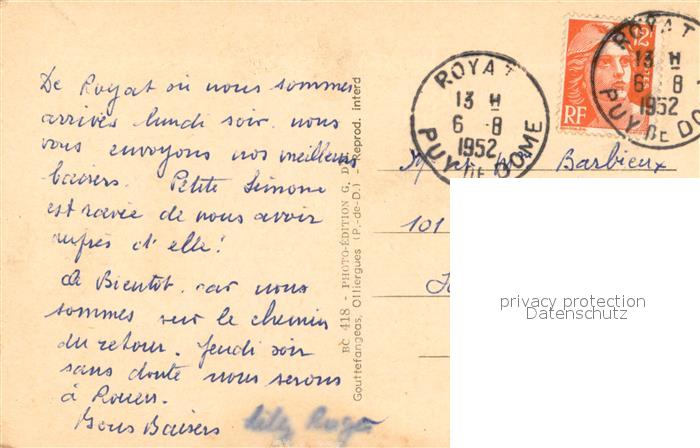 De Royat où nous sommes
arrivés lundi soir, nous
vous envoyons nos meilleurs
baisers. Petite Simone
est ravie de nous avoir
auprès d'elle!
A Bientôt. car nous
sommes sur le chemin
du retour. Jeudi soir
sans doute nous serons
à Rouen.
Bons Baisers
BC 418 - PHOTO-EDITION G. D'
Gouttefangeas, Olliergues (P.-de-D.) - Reprod. interd
ROYAT
13 H
6 - 8
1952
PUY DE DOME
12F
POSTES
RF
ROYAT
13 H
6 - 8 -
1952
PUY DE DO
Barbieux
101
privacy protection
Datenschutz